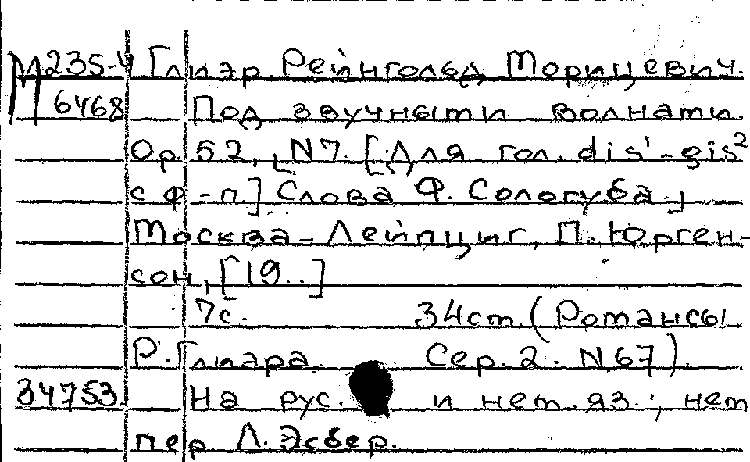 М235-4 Глиэр Рейнгольд Морицевич.
6468 Под звучными волнами.
Op. 52, N7. [Для гол. dis¹-gis²
с ф-п] Слова Ф. Сологуба.
Москва-Лейпциг, П. Юрген-
сон, [19..]
7с. 34см. (Романсы
Р. Глиэра. Сер. 2. N67).
34753. На рус. и нем. яз.; нем
пер Л. Эсбер.